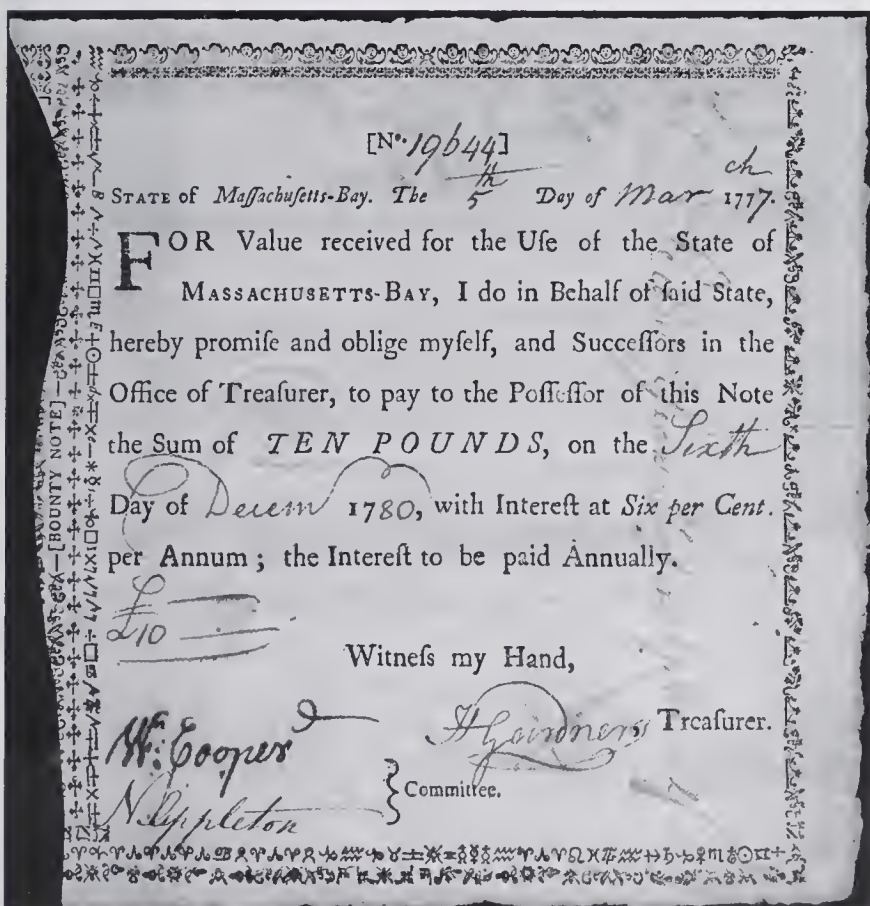 [No. 19644]
STATE of Maſſachuſetts-Bay. The 5th Day of March 1777.
FOR Value received for the Uſe of the State of
MASSACHUSETTS-BAY, I do in Behalf of ſaid State,
hereby promiſe and oblige myſelf, and Succeſſors in the
Office of Treaſurer, to pay to the Poſſeſſor of this Note
the Sum of TEN POUNDS, on the Sixth
Day of Decem 1780, with Intereſt at Six per Cent.
per Annum ; the Intereſt to be paid Annually.
£10
Witneſs my Hand,
H Gardner, Treaſurer.
Wm: Cooper
N Appleton
Committee.
[BOUNTY NOTE]